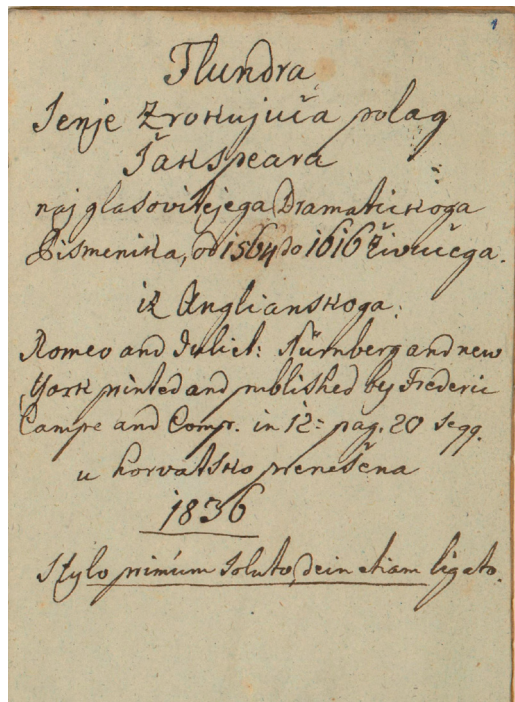 1
Flundra
Senje Zrokujuča polag
Šakspeara
naj glasovitejega Dramatičkoga
Pismenika, od 1564 do 1616 živučega.
iz Anglianskoga:
Romeo and Juliet: Nürnberg and new
York printed and published by Frederic
Campe and Comp. in 12: pag. 20 seqq.
u horvatsko prenešena
1836
Stylo primum soluto, dein etiam ligato.